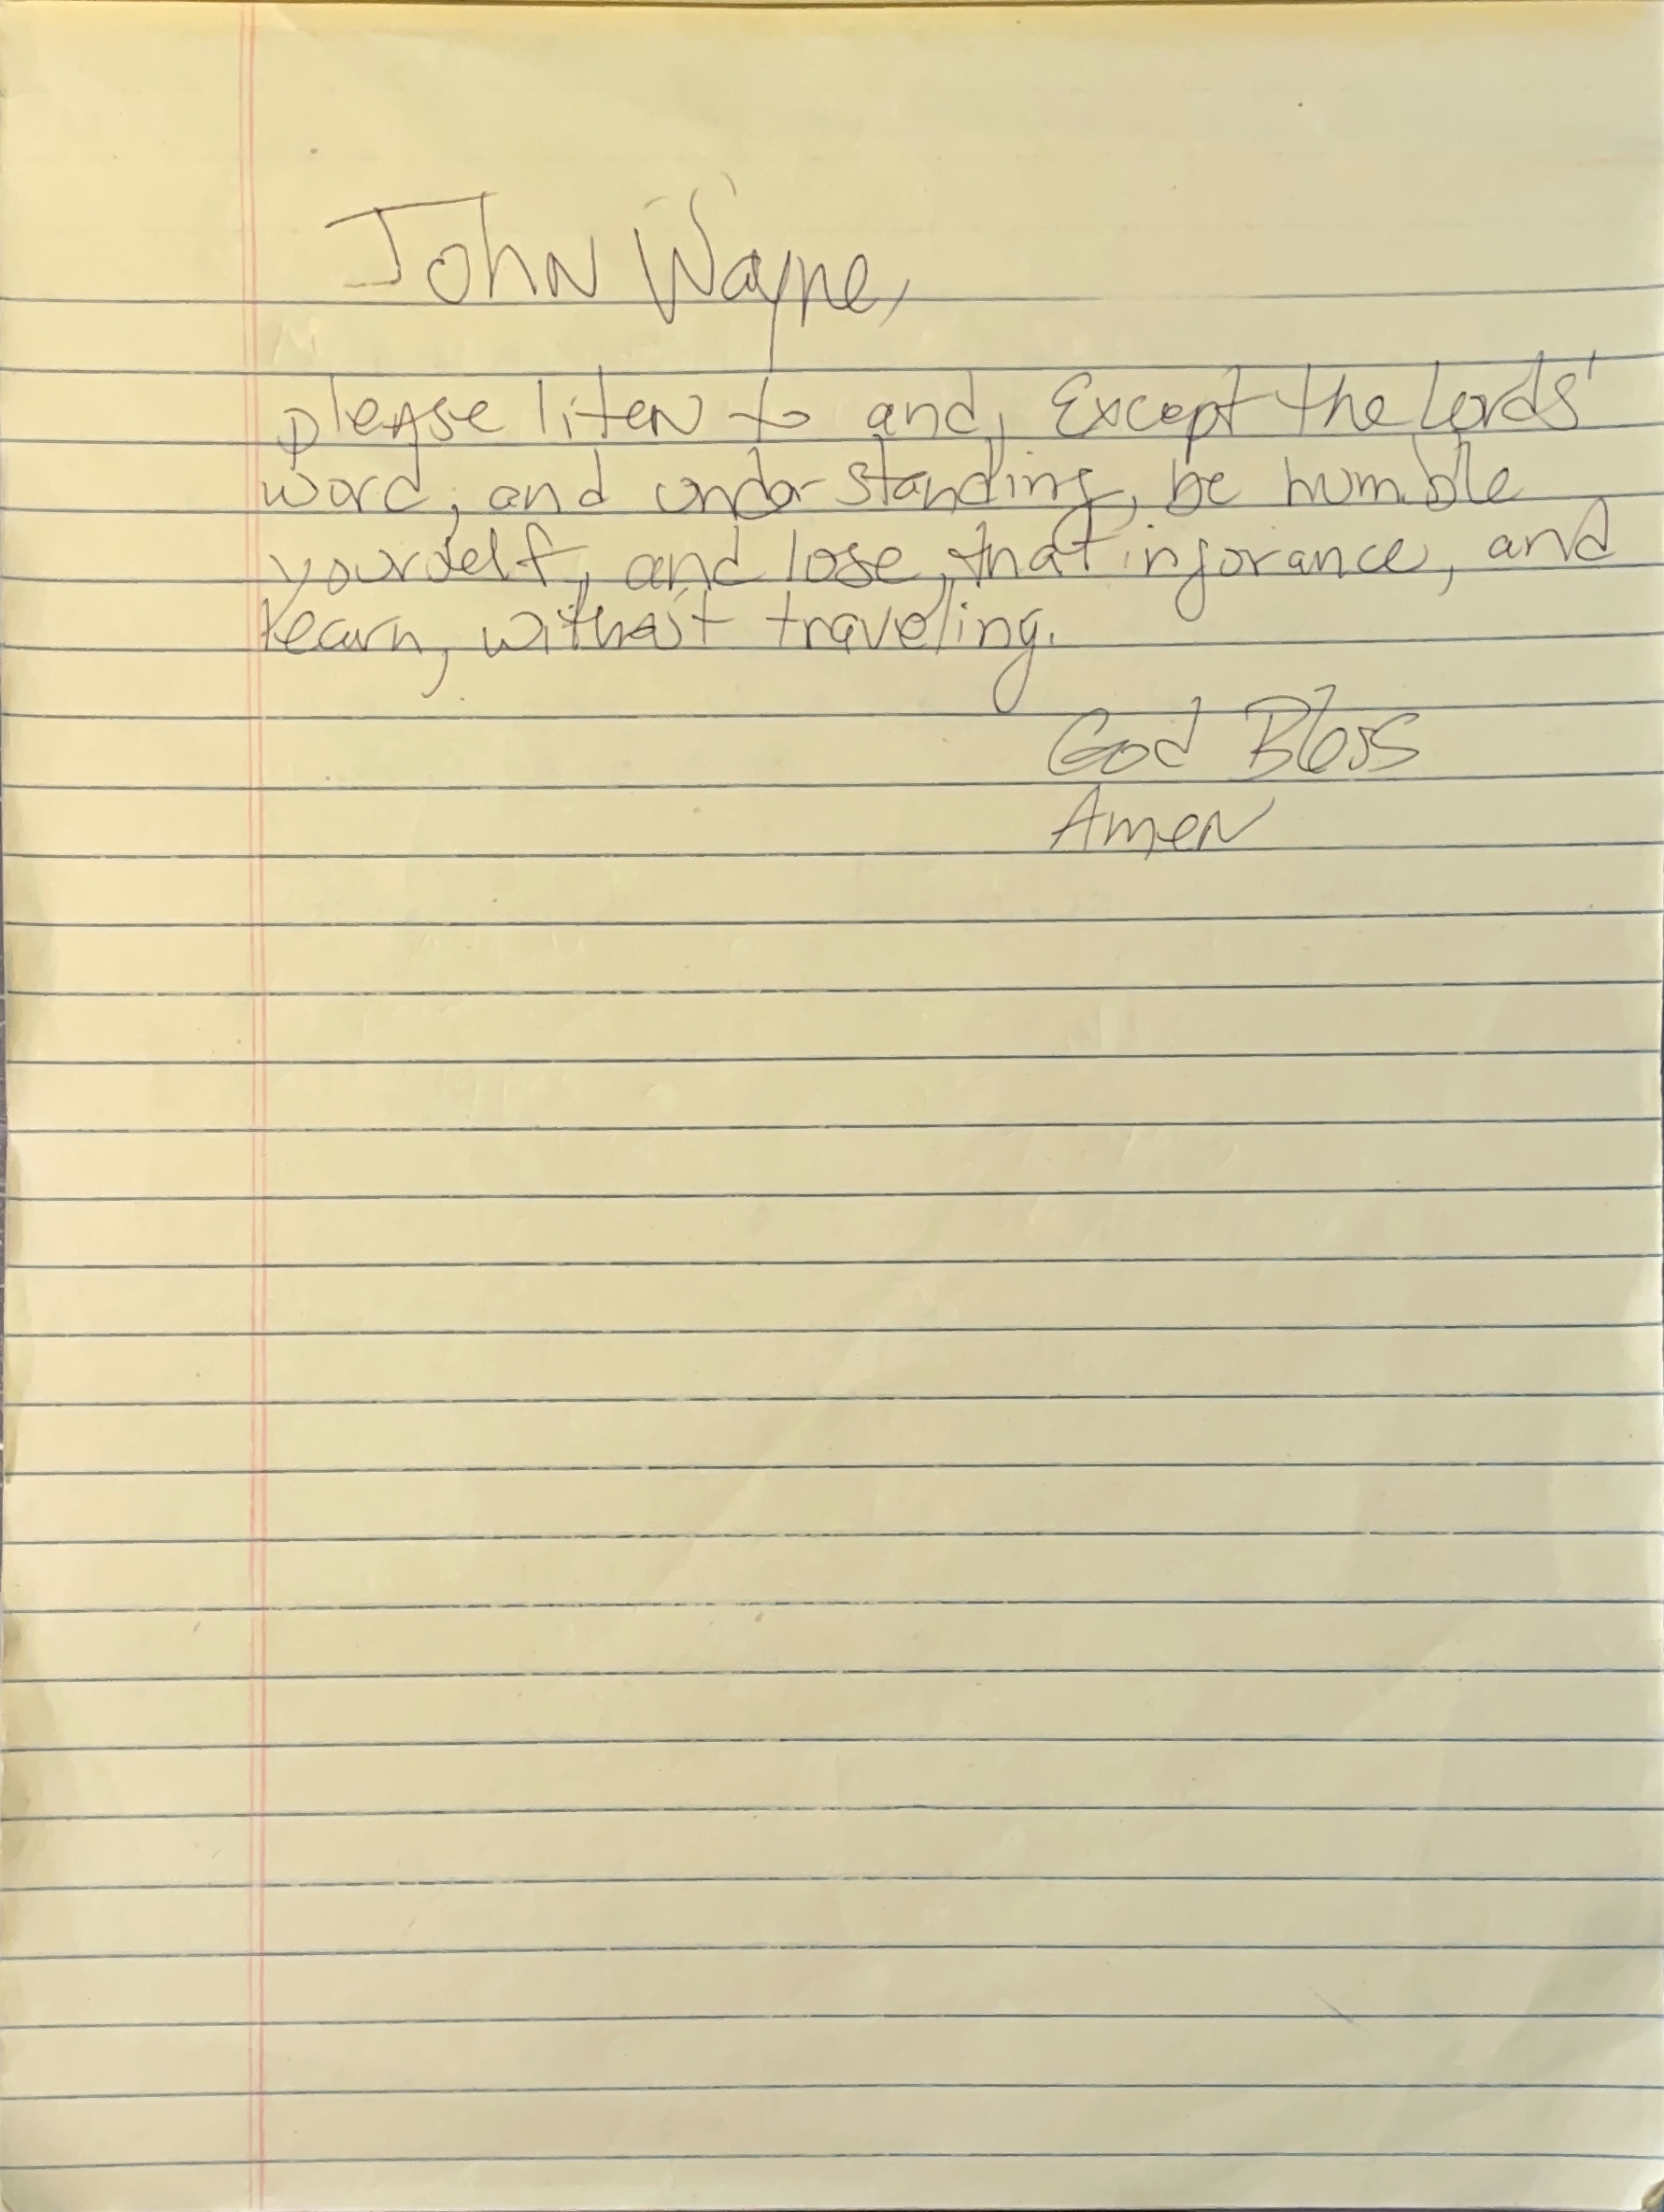 John Wayne,
please liten to and, Except the Lords'
word, and understanding, be humble
yourself, and lose, that injorance, and
learn, without traveling.
God Bless
Amen